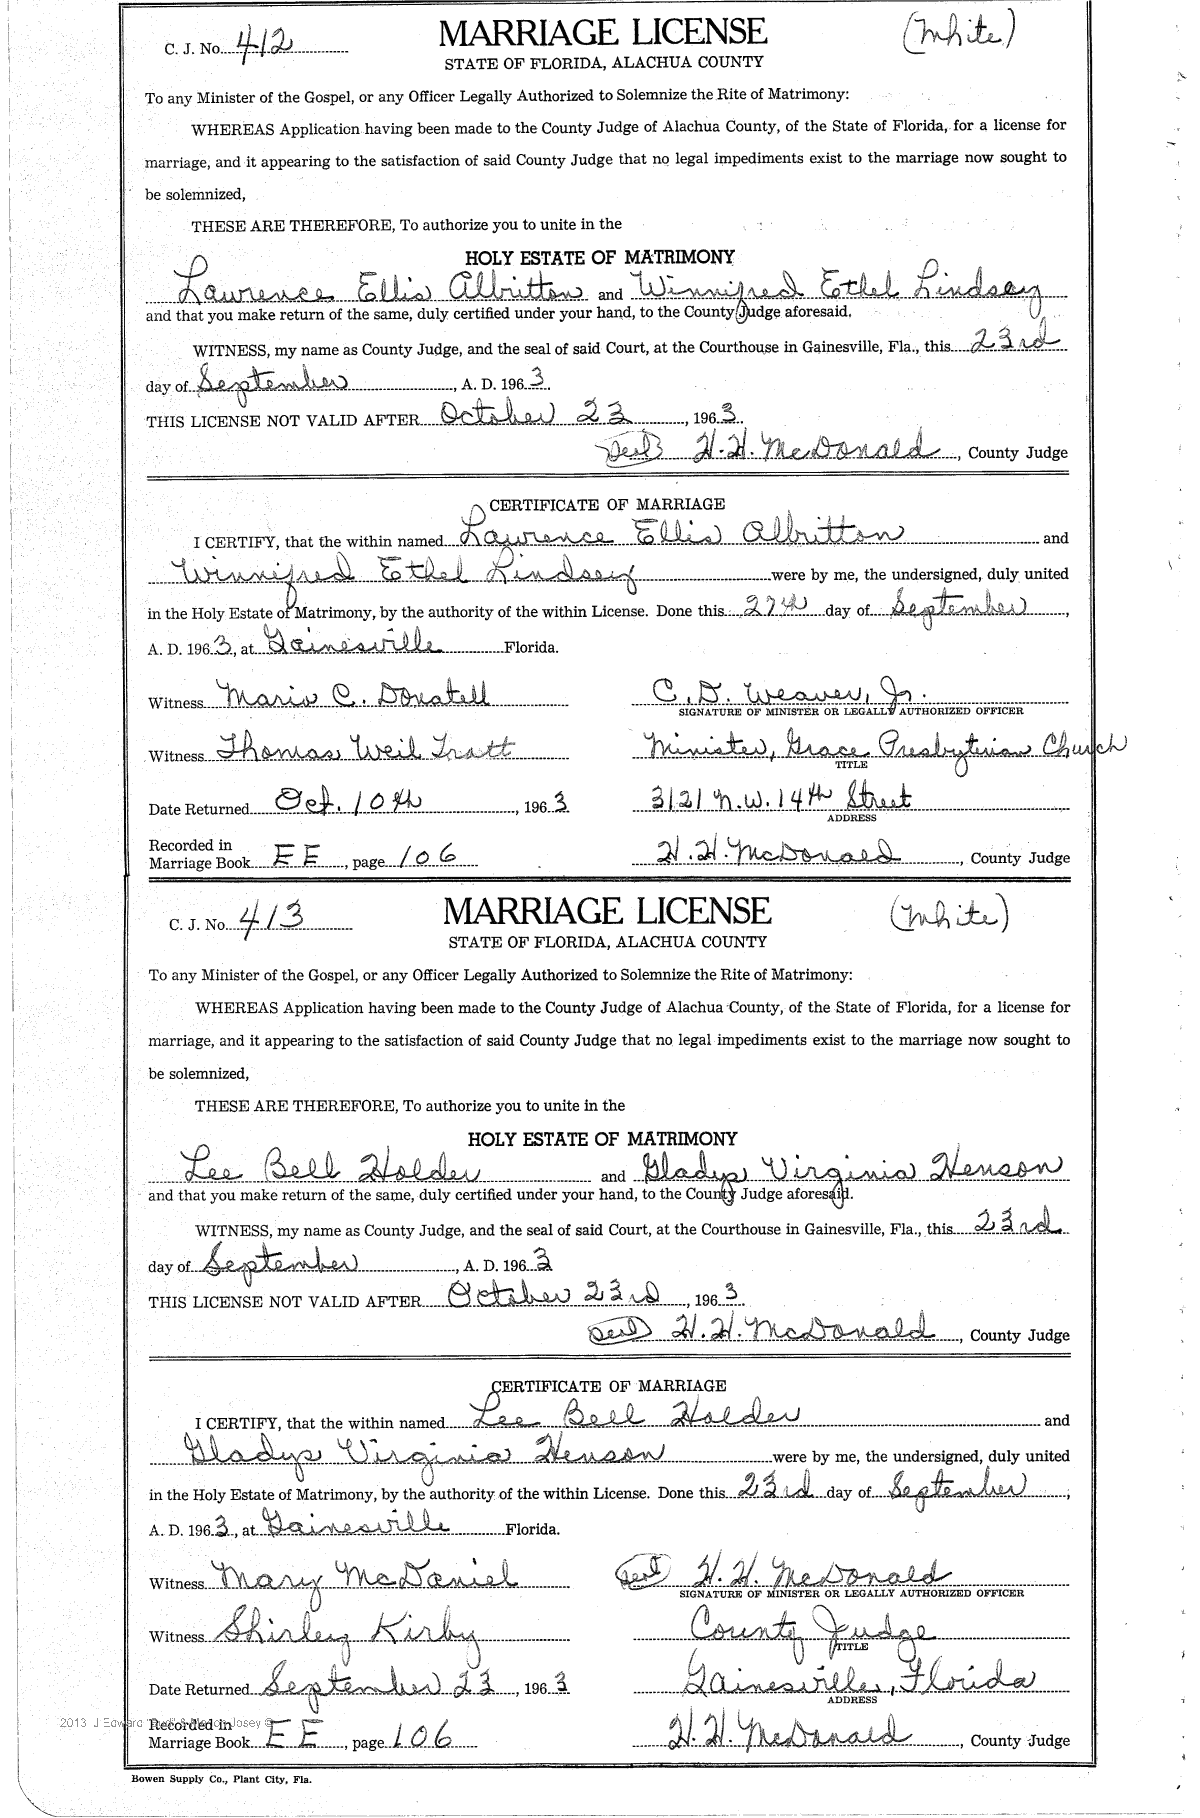 C. J. No. 412 MARRIAGE LICENSE (White)
STATE OF FLORIDA, ALACHUA COUNTY
To any Minister of the Gospel, or any Officer Legally Authorized to Solemnize the Rite of Matrimony:
WHEREAS Application having been made to the County Judge of Alachua County, of the State of Florida, for a license for
marriage, and it appearing to the satisfaction of said County Judge that no legal impediments exist to the marriage now sought to
be solemnized,
THESE ARE THEREFORE, To authorize you to unite in the
HOLY ESTATE OF MATRIMONY
Lawrence Ellis Albritton and Winnifred Ethel Lindsey
and that you make return of the same, duly certified under your hand, to the County Judge aforesaid.
WITNESS, my name as County Judge, and the seal of said Court, at the Courthouse in Gainesville, Fla., this 23rd
day of September, A. D. 1963.
THIS LICENSE NOT VALID AFTER October 23, 1963.
Seal H. H. McDonald, County Judge
CERTIFICATE OF MARRIAGE
I CERTIFY, that the within named Lawrence Ellis Albritton and
Winnifred Ethel Lindsey were by me, the undersigned, duly united
in the Holy Estate of Matrimony, by the authority of the within License. Done this 27th day of September,
A. D. 1963, at Gainesville Florida.
Witness Mario C. Donatell C. D. Weaver, Jr.
SIGNATURE OF MINISTER OR LEGALLY AUTHORIZED OFFICER
Witness Thomas Weil Tratt Minister, Grace Presbyterian Church
TITLE
Date Returned Oct. 10th, 1963 3121 N.W. 14th Street
ADDRESS
Recorded in
Marriage Book EE, page 106 H. H. McDonald, County Judge
C. J. No. 413 MARRIAGE LICENSE (White)
STATE OF FLORIDA, ALACHUA COUNTY
To any Minister of the Gospel, or any Officer Legally Authorized to Solemnize the Rite of Matrimony:
WHEREAS Application having been made to the County Judge of Alachua County, of the State of Florida, for a license for
marriage, and it appearing to the satisfaction of said County Judge that no legal impediments exist to the marriage now sought to
be solemnized,
THESE ARE THEREFORE, To authorize you to unite in the
HOLY ESTATE OF MATRIMONY
Lee Bell Holder and Gladys Virginia Henson
and that you make return of the same, duly certified under your hand, to the County Judge aforesaid.
WITNESS, my name as County Judge, and the seal of said Court, at the Courthouse in Gainesville, Fla., this 23rd
day of September, A. D. 1963
THIS LICENSE NOT VALID AFTER October 23rd, 1963.
Seal H. H. McDonald, County Judge
CERTIFICATE OF MARRIAGE
I CERTIFY, that the within named Lee Bell Holder and
Gladys Virginia Henson were by me, the undersigned, duly united
in the Holy Estate of Matrimony, by the authority of the within License. Done this 23rd day of September,
A. D. 1963, at Gainesville Florida.
Witness Mary McDaniel Seal H. H. McDonald
SIGNATURE OF MINISTER OR LEGALLY AUTHORIZED OFFICER
Witness Shirley Kirby County Judge
TITLE
Date Returned September 23, 1963 Gainesville, Florida
ADDRESS
2013 J Edward Josey ©
Recorded in
Marriage Book EE, page 106 H. H. McDonald, County Judge
Bowen Supply Co., Plant City, Fla.